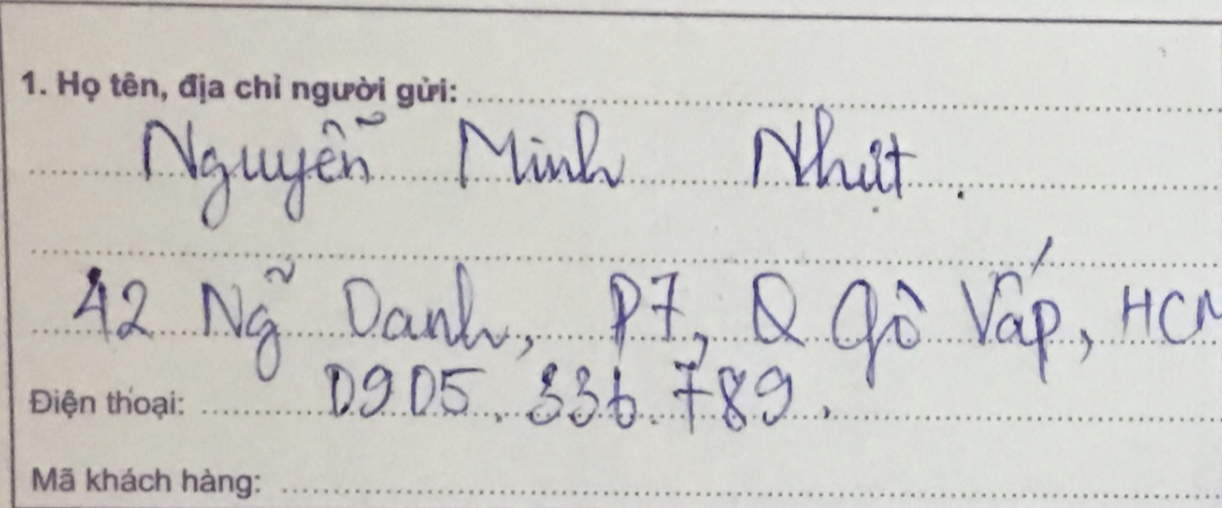 1. Họ tên, địa chỉ người gửi:
Nguyễn Minh Nhựt.
42 Ng̃ Danh, P7, Q Gò Vấp, HCM
Điện thoại: 0905.336.789.
Mã khách hàng: